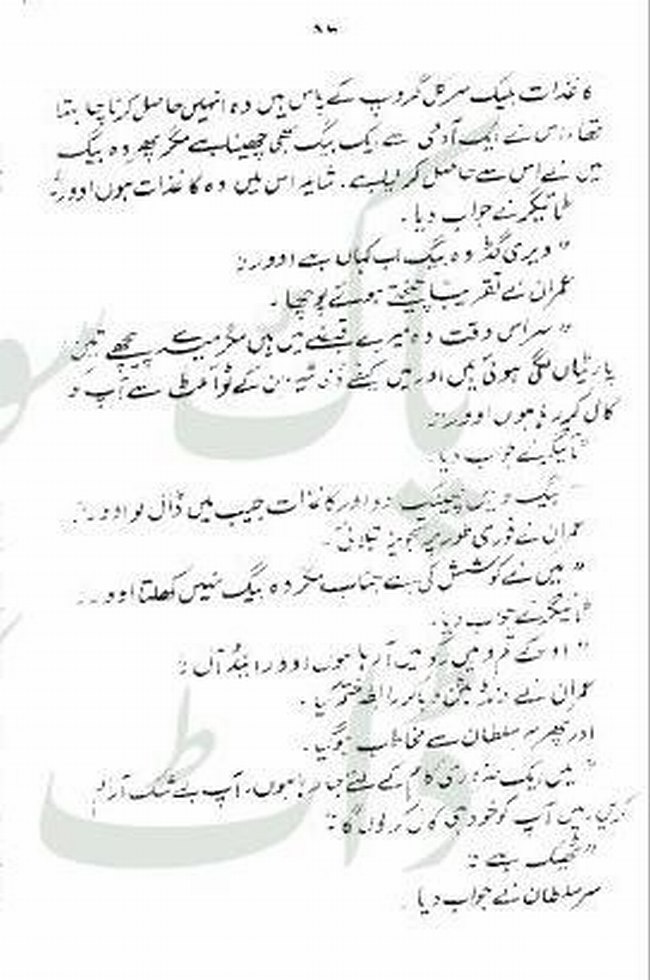 ۸۳
کاغذات بلیک سرکل گروپ کے پاس ہیں وہ انہیں حاصل کرنا چاہتا
تھا۔ اس نے ایک آدمی سے ایک بیگ بھی چھینا ہے مگر پھر وہ بیگ
میں نے اس سے حاصل کر لیا ہے۔ شاید اس میں وہ کاغذات ہوں اوور"
ٹائیگر نے جواب دیا۔
" ویری گڈ وہ بیگ اب کہاں ہے اوور"
عمران نے تقریباً چیختے ہوئے پوچھا۔
" سر اس وقت وہ میرے قبضے میں ہیں مگر میرے پیچھے تین
پارٹیاں لگی ہوئی ہیں اور میں کیفے کے ٹوائلٹ سے آپ کو
کال کر رہا ہوں اوور"
ٹائیگر نے جواب دیا۔
" بیگ وہیں پھینک دو اور کاغذات جیب میں ڈال لو اوور"
عمران نے فوری طور پر تجویز بتلائی۔
" میں نے کوشش کی ہے جناب مگر وہ بیگ نہیں کھلتا اوور"
ٹائیگر نے جواب دیا۔
" او کے تم وہیں رکو میں آ رہا ہوں اوور اینڈ آل"
عمران نے بٹن دبا کر رابطہ ختم کیا۔
اور پھر سر سلطان سے مخاطب ہو گیا۔
" میں ایک ضروری کام کے لئے جا رہا ہوں۔ آپ بے شک آرام
کریں۔ میں آپ کو خود ہی کال کر لوں گا"
" ٹھیک ہے"
سر سلطان نے جواب دیا۔
پاک
واٹ